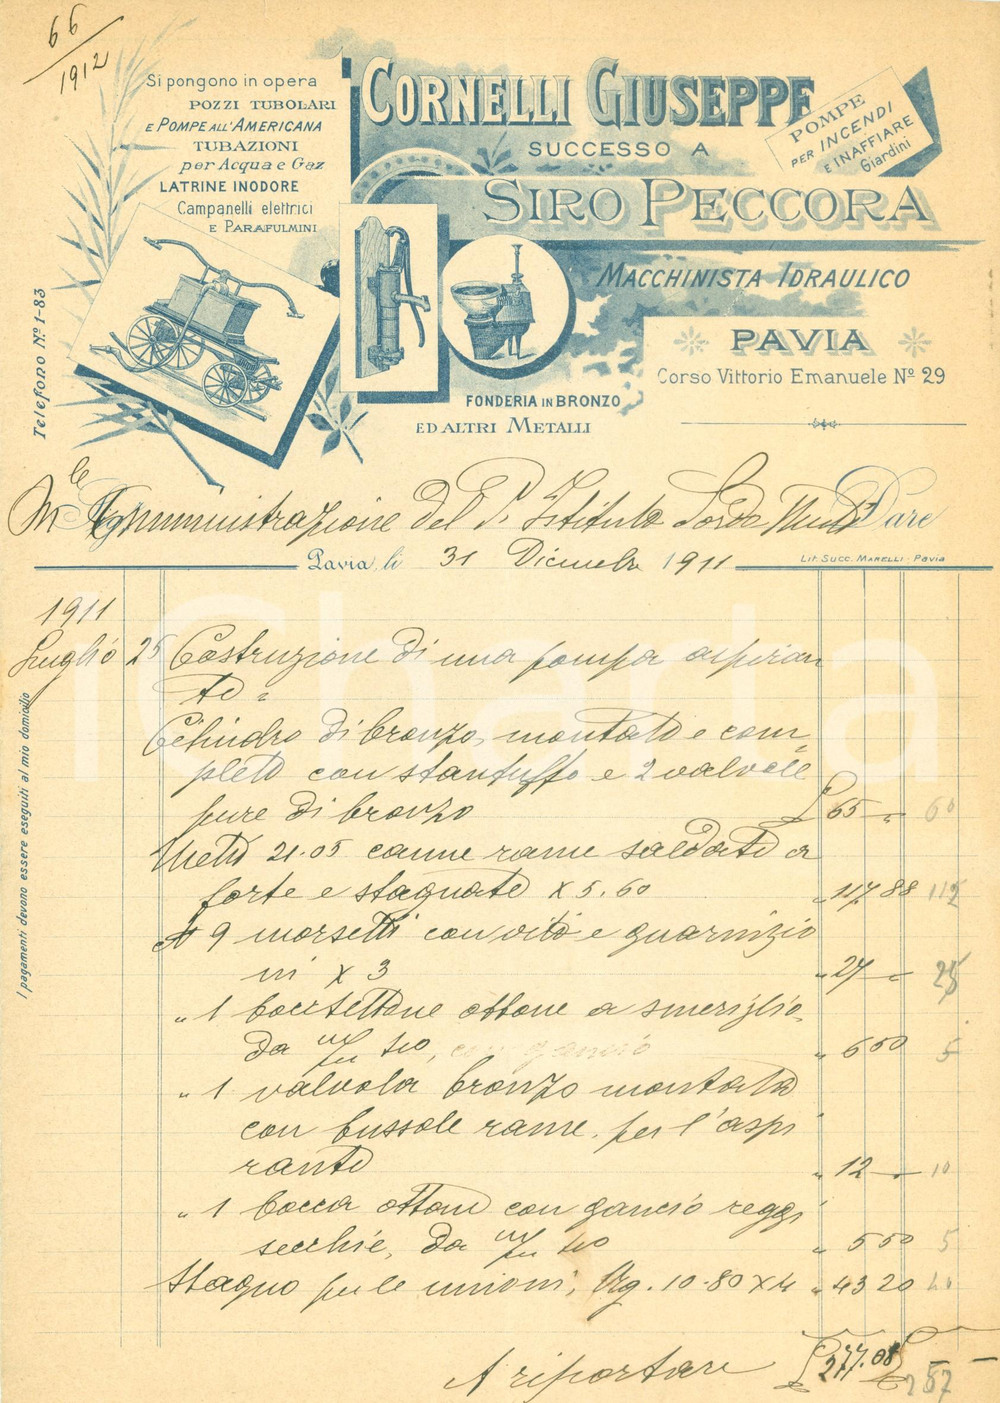 66
1912
Si pongono in opera
POZZI TUBOLARI
E POMPE ALL'AMERICANA
TUBAZIONI
per Acqua e Gaz
LATRINE INODORE
Campanelli elettrici
E PARAFULMINI
CORNELLI GIUSEPPE
SUCCESSO A
SIRO PECCORA
POMPE
PER INCENDI
E INAFFIARE
Giardini
MACCHINISTA IDRAULICO
PAVIA
Corso Vittorio Emanuele Nº 29
FONDERIA IN BRONZO
ED ALTRI METALLI
Telefono Nº 1-83
Amministrazione del P. Istituto Sordo Muti Dare
Pavia, li 31 Dicembre 1911
Lit. Succ. MARELLI - Pavia
I pagamenti devono essere eseguiti al mio domicilio
1911
Luglio 25 Costruzione di una pompa aspiran
te =
Cilindro di bronzo, montato e com=
pleto con stantuffo e 2 valvole
pure di bronzo £ 65 " 60
Metri 21.05 canne rame saldate a
forte e stagnate x 5.60 " 117 88 112
N 9 morsetti con viti e guarnizio
ni x 3 " 27 " 25
" 1 bocchettone ottone a smeriglio,
da m/m 40, con gancio " 6 50 5
" 1 valvola bronzo montata
con bussole rame, per l'aspi
rante " 12 " 10
" 1 bocca ottone con gancio reggi
secchie, da m/m 40 " 5 50 5
Stagno per le unioni, Kg. 10.80 x 4 " 43 20 40
A riportare £ 277.08 £ 257